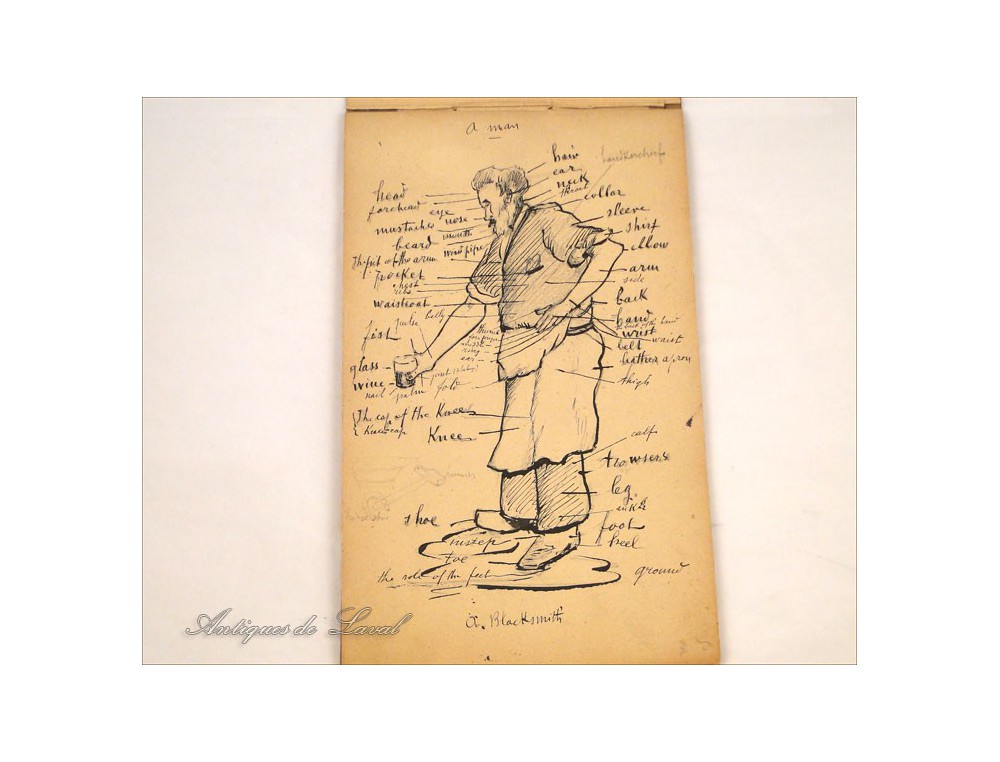 a man
hair
handkerchief
ear
neck
throat
collar
head
forehead
eye
nose
sleeve
mustaches
mouth
shirt
beard
wind pipe
elbow
The pit of the arm
arm
pocket
side
chest
ribs
back
waistcoat
belly
hand
the back of the hand
pulse
fist
thumb
wrist
waist
middle
belt
ring
ear
leather apron
glass
wine
joint
fold
thigh
nail
palm
The cap of the Knee
Knee cap
Knee
calf
trowsers
leg
shoe
foot
instep
heel
toe
the sole of the feet
ground
A. Blacksmith
Antiques de Laval